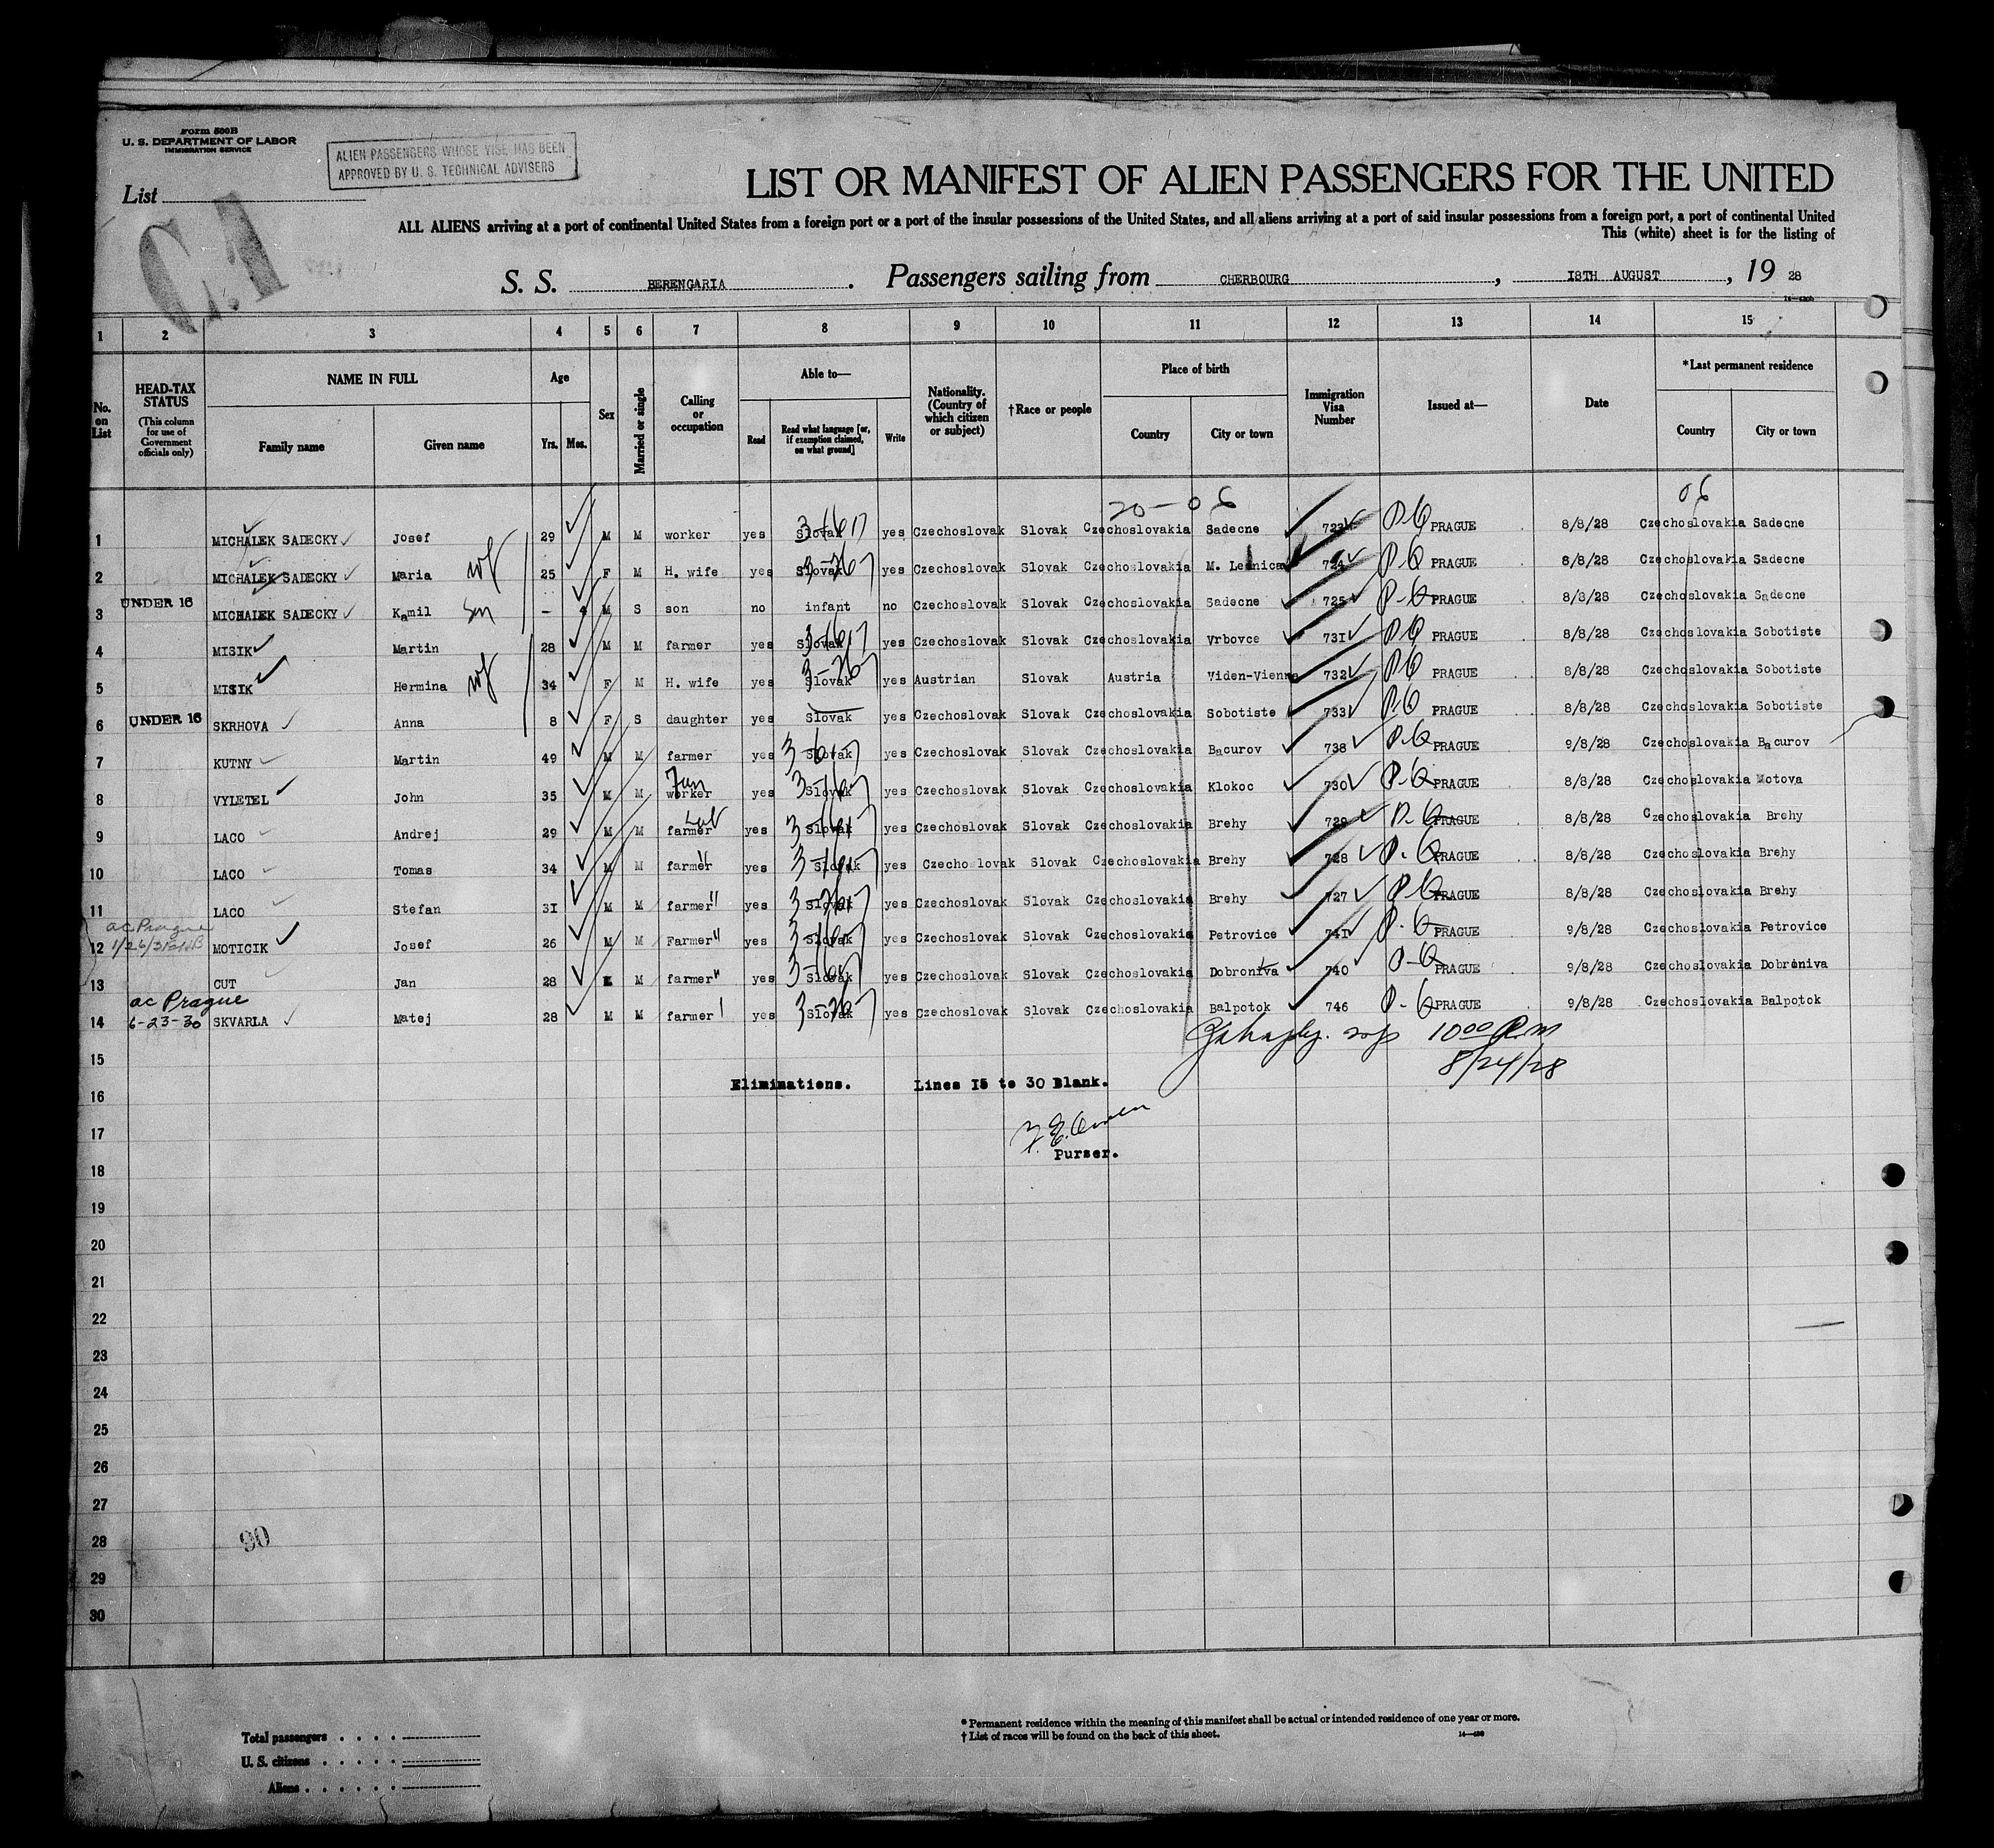 Form 500B
U. S. DEPARTMENT OF LABOR
IMMIGRATION SERVICE
ALIEN PASSENGERS WHOSE VISE HAS BEEN
APPROVED BY U. S. TECHNICAL ADVISERS
List
LIST OR MANIFEST OF ALIEN PASSENGERS FOR THE UNITED
ALL ALIENS arriving at a port of continental United States from a foreign port or a port of the insular possessions of the United States, and all aliens arriving at a port of said insular possessions from a foreign port, a port of continental United
This (white) sheet is for the listing of
S. S. BERENGARIA. Passengers sailing from CHERBOURG, 18TH AUGUST, 19 28
1 2 3 4 5 6 7 8 9 10 11 12 13 14 15
No. on List
HEAD-TAX STATUS (This column for use of Government officials only)
NAME IN FULL Family name Given name
Age Yrs. Mos.
Sex
Married or single
Calling or occupation
Able to— Read Read what language [or, if exemption claimed, on what ground] Write
Nationality. (Country of which citizen or subject)
†Race or people
Place of birth Country City or town
Immigration Visa Number
Issued at—
Date
*Last permanent residence Country City or town
20-06 06
1 MICHALEK SADECKY Josef 29 M M worker yes Slovak yes Czechoslovak Slovak Czechoslovakia Sadecne 723 PRAGUE 8/8/28 Czechoslovakia Sadecne
2 MICHALEK SADECKY Maria wf 25 F M H. wife yes Slovak yes Czechoslovak Slovak Czechoslovakia M. Lednica 724 PRAGUE 8/8/28 Czechoslovakia Sadecne
3 UNDER 16 MICHALEK SADECKY Kamil son - 4 M S son no infant no Czechoslovak Slovak Czechoslovakia Sadecne 725 PRAGUE 8/8/28 Czechoslovakia Sadecne
4 MISIK Martin 28 M M farmer yes Slovak yes Czechoslovak Slovak Czechoslovakia Vrbovce 731 PRAGUE 8/8/28 Czechoslovakia Sobotiste
5 MISIK Hermina wf 34 F M H. wife yes Slovak yes Austrian Slovak Austria Viden-Vienna 732 PRAGUE 8/8/28 Czechoslovakia Sobotiste
6 UNDER 16 SKRHOVA Anna 8 F S daughter yes Slovak yes Czechoslovak Slovak Czechoslovakia Sobotiste 733 PRAGUE 8/8/28 Czechoslovakia Sobotiste
7 KUTNY Martin 49 M M farmer yes Slovak yes Czechoslovak Slovak Czechoslovakia Bacurov 738 PRAGUE 9/8/28 Czechoslovakia Bacurov
8 VYLETEL John 35 M M worker yes Slovak yes Czechoslovak Slovak Czechoslovakia Klokoc 730 PRAGUE 8/8/28 Czechoslovakia Motova
9 LACO Andrej 29 M M farmer yes Slovak yes Czechoslovak Slovak Czechoslovakia Brehy 729 PRAGUE 8/8/28 Czechoslovakia Brehy
10 LACO Tomas 34 M M farmer yes Slovak yes Czecho lovak Slovak Czechoslovakia Brehy 728 PRAGUE 8/8/28 Czechoslovakia Brehy
11 LACO Stefan 31 M M farmer yes Slovak yes Czechoslovak Slovak Czechoslovakia Brehy 727 PRAGUE 8/8/28 Czechoslovakia Brehy
ac Prague
12 MOTICIK Josef 26 M M Farmer yes Slovak yes Czechoslovak Slovak Czechoslovakia Petrovice 741 PRAGUE 9/8/28 Czechoslovakia Petrovice
13 CUT Jan 28 M farmer yes Slovak yes Czechoslovak Slovak Czechoslovakia Dobroniva 740 PRAGUE 9/8/28 Czechoslovakia Dobroniva
ac Prague
14 6-23-30 SKVARLA Matej 28 M M farmer yes Slovak yes Czechoslovak Slovak Czechoslovakia Balpotok 746 PRAGUE 9/8/28 Czechoslovakia Balpotok
10 00 P.m
8/24/28
15
Eliminations. Lines 15 to 30 Blank.
16
17
Purser.
18
19
20
21
22
23
24
25
26
27
28
90
29
30
Total passengers
U. S. citizens
Aliens
* Permanent residence within the meaning of this manifest shall be actual or intended residence of one year or more.
† List of races will be found on the back of this sheet.